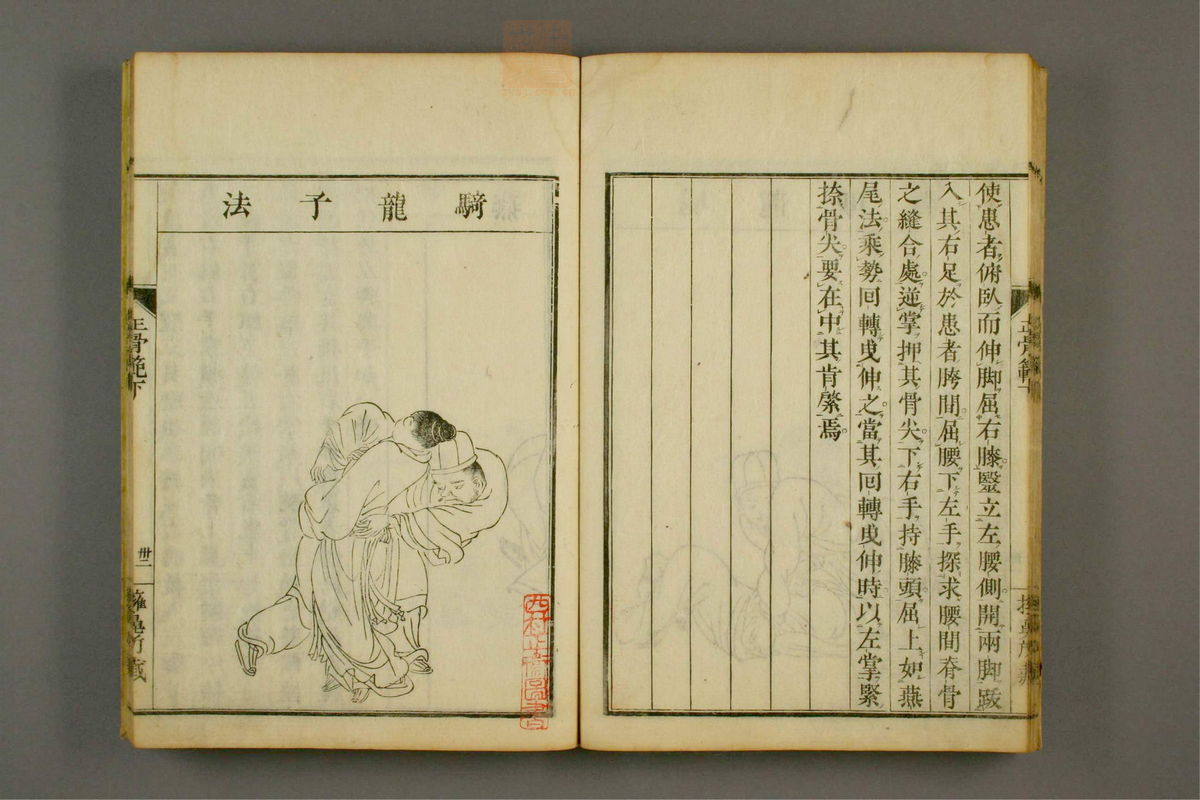 使患者俯臥而伸脚屈右膝竪立左腰側開兩脚跋
入其右足於患者胯間屈腰下左手探求腰間脊骨
之縫合處逆掌押其骨尖下右手持膝頭屈上如燕
尾法乘勢回轉曳伸之當其回轉曳伸時以左掌緊
捺骨尖要在中其肯綮焉
正骨範下
騎龍子法
正骨範下
卅二